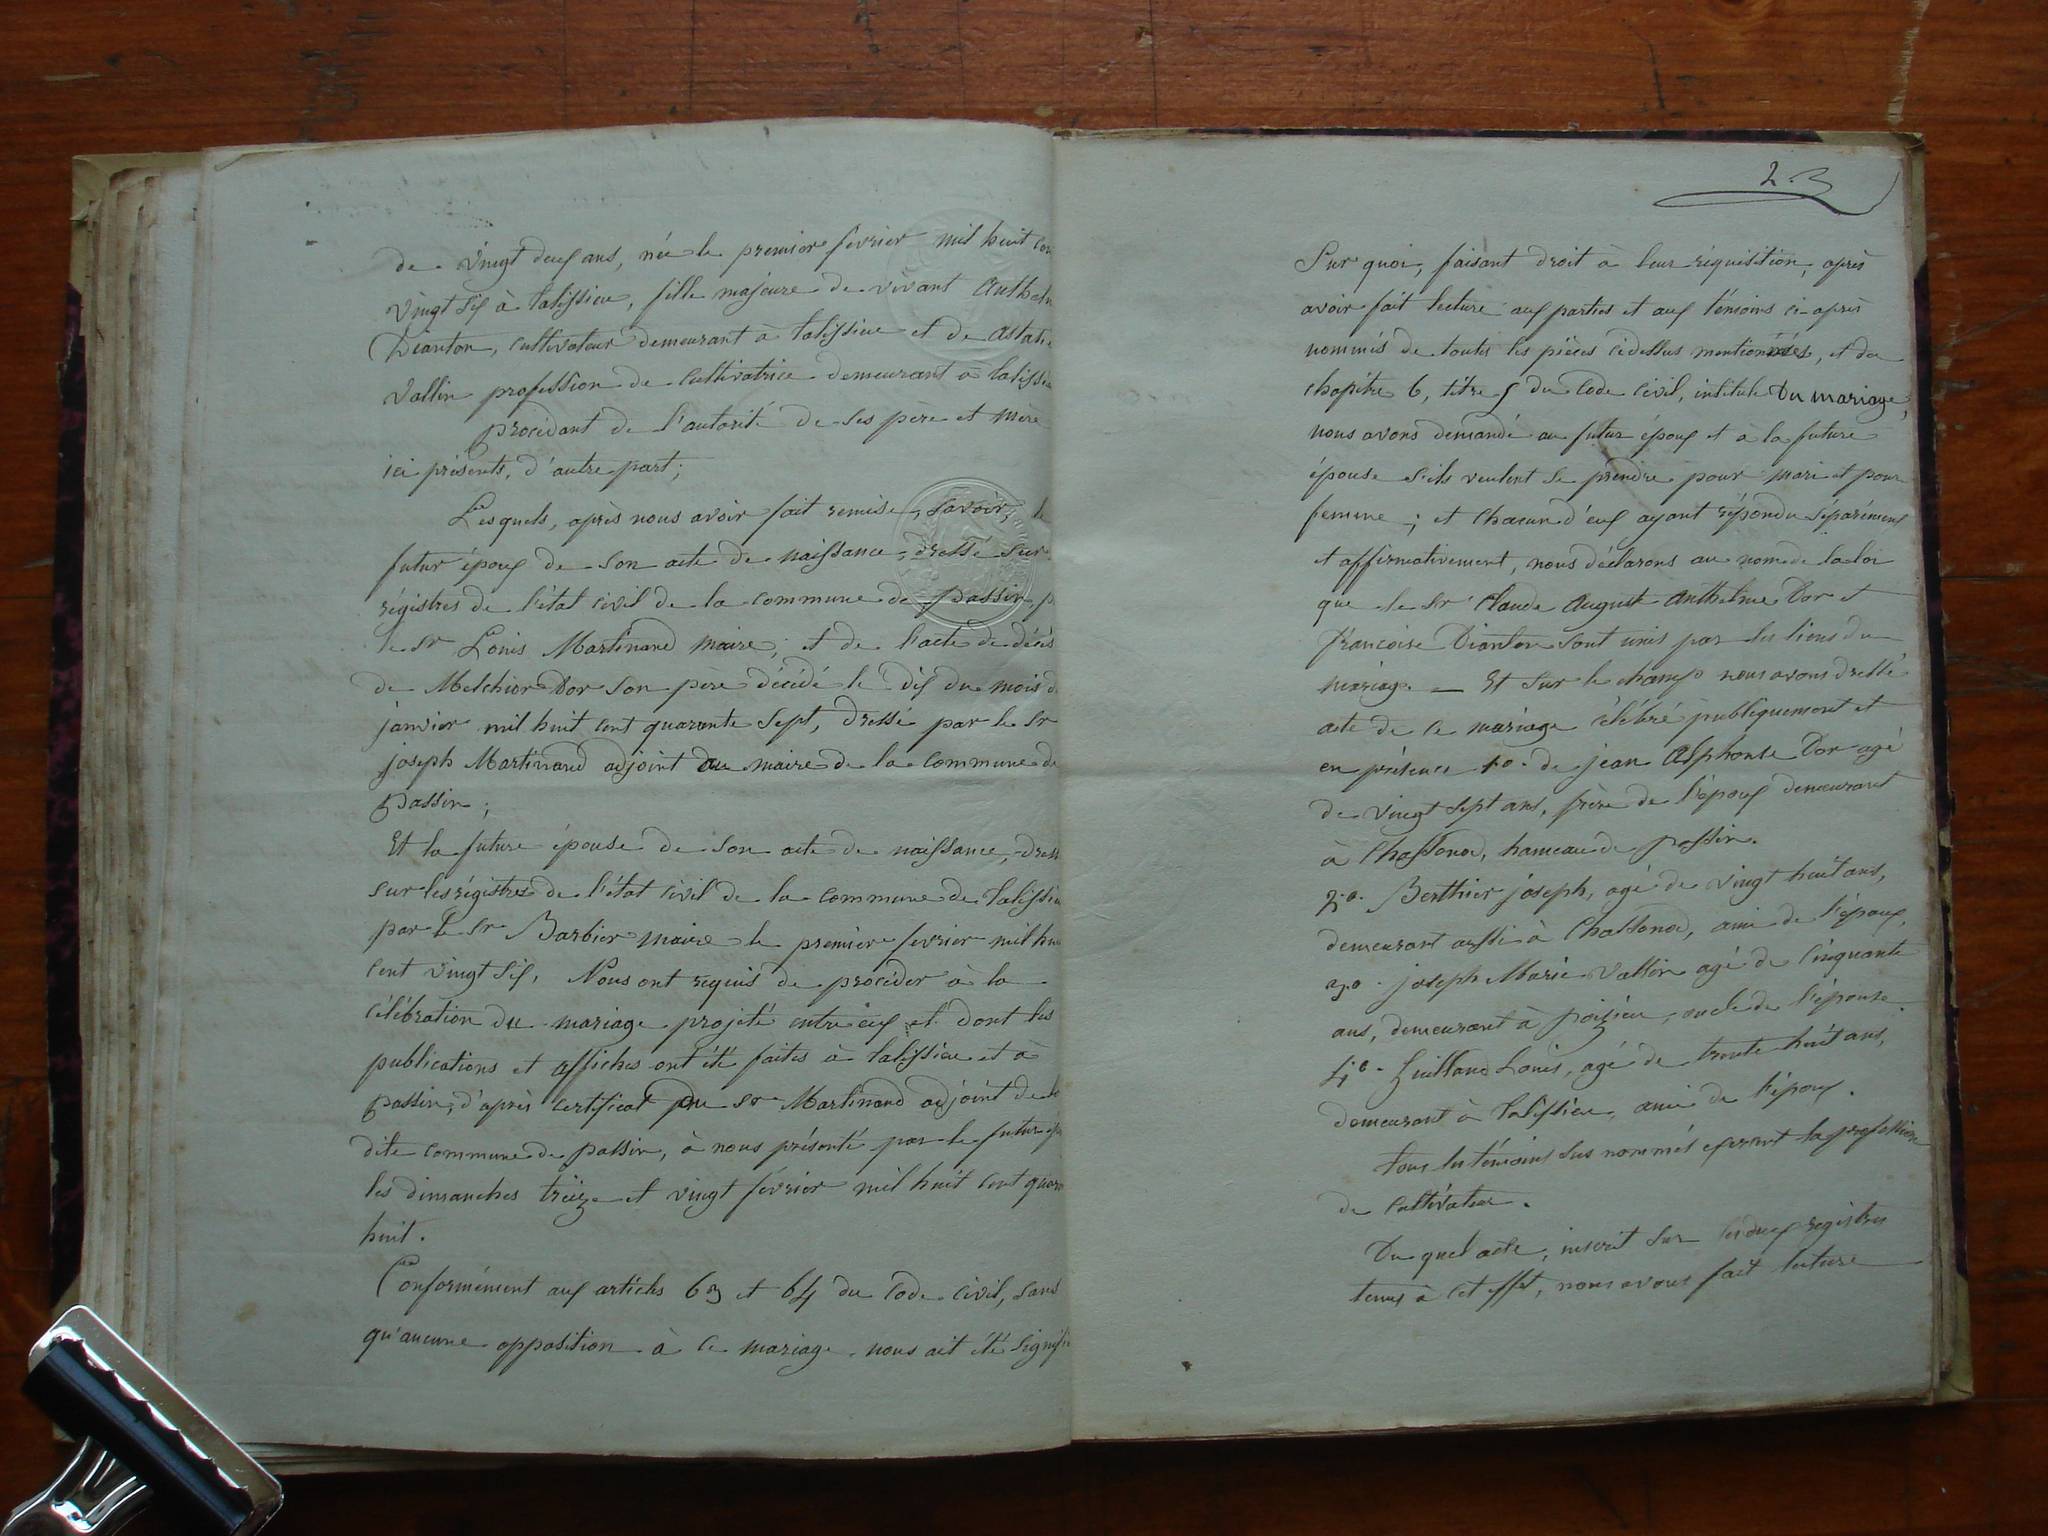 de vingt deux ans, née le premier fevrier mil huit cen
vingt six à talissieu, fille majeure de vivant Anthelm
Dianton, cultivateur demeurant à talissieu et de
Vallin profession de cultivatrice demeurant à talissie
procédant de l'autorité de ses père et mère
ici présents, d'autre part;
Lesquels, après nous avoir fait remise, savoir, le
futur époux de son acte de naissance, dressé sur
régistres de l'état civil de la commune de passin, p
le Sr Louis Martinand maire, et de l'acte de décès
de Melchior Dor son père décédé le dix du mois d
janvier mil huit cent quarante sept, dressé par le Sr
joseph Martinand adjoint au maire de la commune de
passin;
Et la future épouse de son acte de naissance, dress
sur les régistres de l'état civil de la commune de talissieu
par le Sr Barbier maire le premier fevrier mil hui
cent vingt six, Nous ont requis de procéder à la
célébration du mariage projeté entre eux et dont les
publications et affiches ont été faites à talissieu et à
passin, d'après certificat du Sr Martinand adjoint de la
dite commune de passin, à nous présenté par le futur ép
les dimanches treize et vingt février mil huit cent quara
huit.
Conformément aux articles 63 et 64 du Code civil, sans
qu'aucune opposition à ce mariage nous ait été signifi
23
Sur quoi, faisant droit à leur réquisition, après
avoir fait lecture aux parties et aux témoins ci-après
nommés de toutes les pièces cidessus mentionnées, et du
chapitre 6, titre 5 du Code civil, intitulé Du mariage,
nous avons demandé au futur époux et à la future
épouse s'ils veulent se prendre pour mari et pour
femme; et chacun d'eux ayant répondu séparément
et affirmativement, nous déclarons au nom de la loi
que le Sr Claude August Anthelme Dor et
françoise Dianton sont unis par les liens du
mariage. — Et sur le champ nous avons dressé
acte de ce mariage célébré publiquement et
en présence 1o. de jean Alphonse Dor agé
de vingt sept ans, frère de l'époux demeurant
à Chassonod, hameau de passin.
2o. Berthier joseph, agé de vingt huit ans,
demeurant aussi à Chassonod, ami de l'époux,
3o. joseph Marie Vallin agé de cinquante
ans, demeurant à poisieu, oncle de l'épouse.
4o. Guilland Louis, agé de trente huit ans,
demeurant à talissieu, ami de l'époux.
tous les témoins sus nommés exercent la profession
de cultivateur.
Du quel acte, inscrit sur les deux registres
tenus à cet effet, nous avons fait lecture